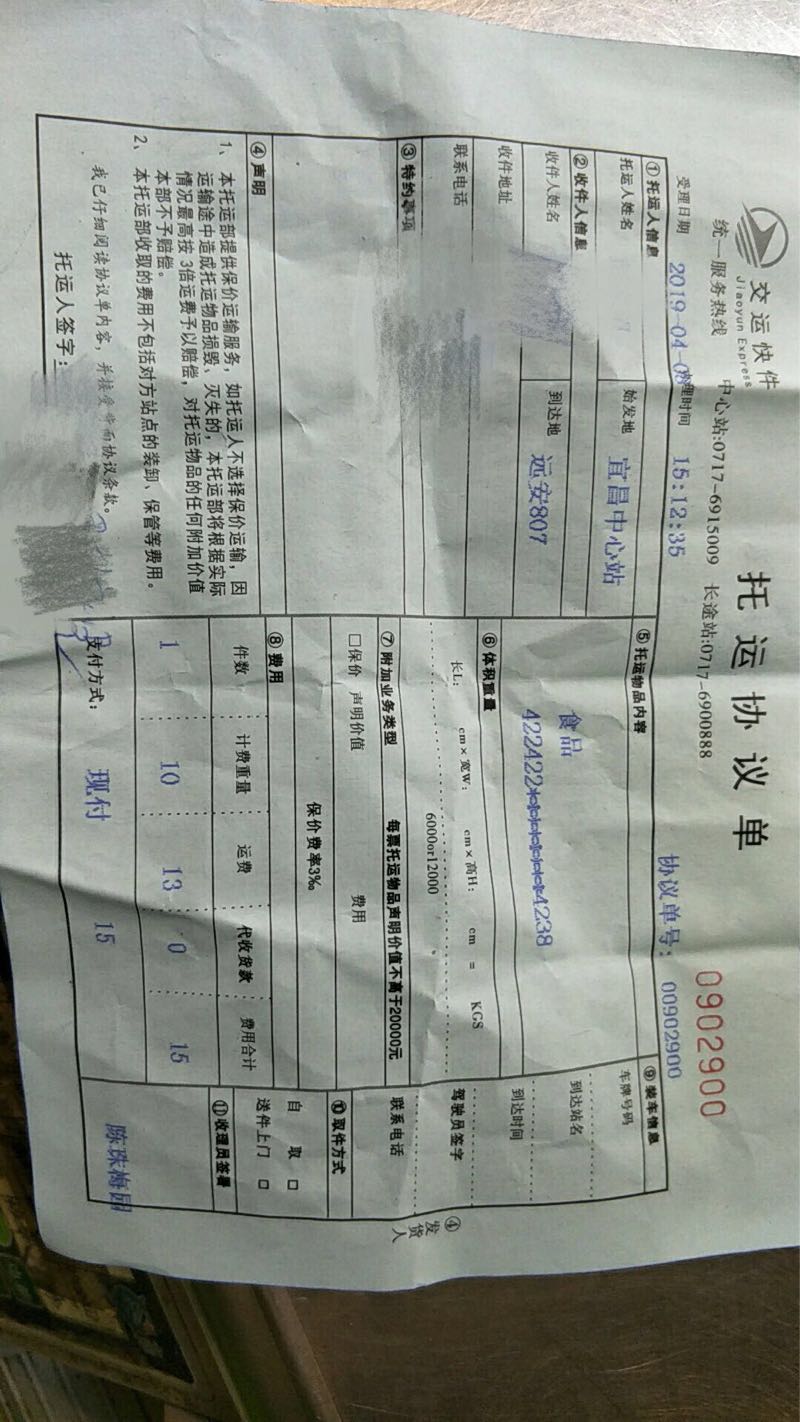 交运快件
Jiaoyun Express
托运协议单
0902900
统一服务热线 中心站:0717-6915009 长途站:0717-6900888
协议单号: 00902900
受理日期 2019-04-0 受理时间 15:12:35
①托运人信息
托运人姓名
始发地 宜昌中心站
②收件人信息
收件人姓名
到达地 远安807
收件地址
联系电话
③特约事项
④声明
1、本托运部提供保价运输服务，如托运人不选择保价运输，因
运输途中造成托运物品损毁、灭失的，本托运部将根据实际
情况最高按 3倍运费予以赔偿，对托运物品的任何附加价值
本部不予赔偿。
2、本托运部收取的费用不包括对方站点的装卸、保管等费用。
我已仔细阅读协议单内容，并接受背面协议条款。
托运人签字:
⑤托运物品内容
食品
422422********4238
⑥体积重量
长L: cm×宽W: cm×高H: cm = KGS
6000or12000
⑦附加业务类型 每票托运物品声明价值不高于20000元
□保价 声明价值 费用
保价费率3‰
⑧费用
件数 计费重量 运费 代收货款 费用合计
1 10 13 0 15
支付方式: 现付 15
⑨装车信息
车牌号码
到达站名
到达时间
驾驶员签字
联系电话
⑩取件方式
自 取 □
送件上门 □
⑪收理员签署
陈珠梅园
④发货人